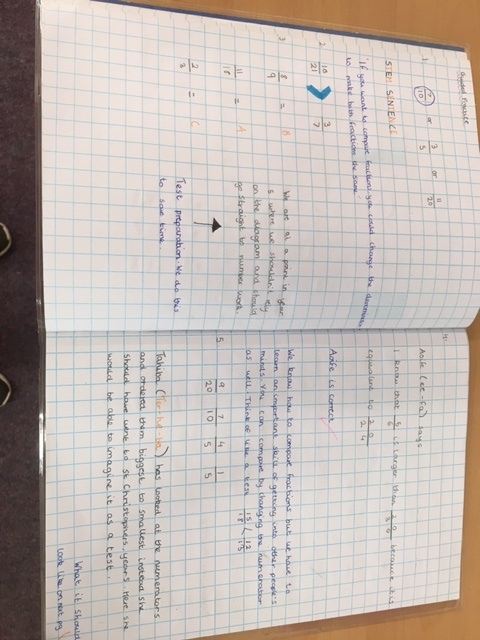 Guided Practice
1 7/10 or 3/5 or 11/20
STEM SENTENCE
"If you want to compare fractions you could change the denominator
to make both fractions the same.
2 10/21 3/7
3 8/9 = B
11/18 = A
2/3 = C
We are at a point in year
5 where we shouldn't rely
on the diagram and should
go straight to number work.
Test preparation. We do this
to save time.
4.
says
I know that 5/6 is larger than because it's
equivalent to 20/24
is correct
We know how to compare fractions but we have to
learn an important skill of getting into other people's
minds. You can compare by changing the numerator
as well. Think of like a test
5 9/20 7/10 4/5 1/5
Tahiba has looked at the numerators
and ordered them biggest to smallest instead she
should have went to St Christophers, year 5. Here she
would be able to imagine it as a test.
What it should
look like on next pg